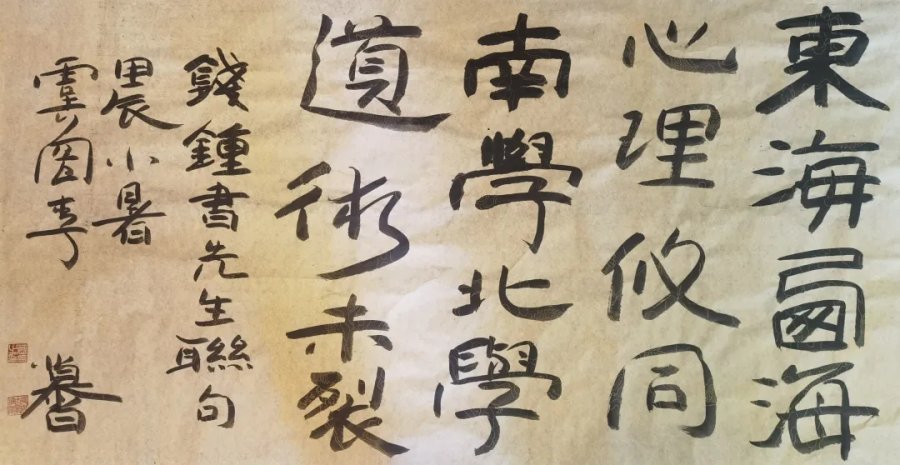 東海西海
心理攸同
南學北學
道術未裂
錢鍾書先生聯句
甲辰小暑